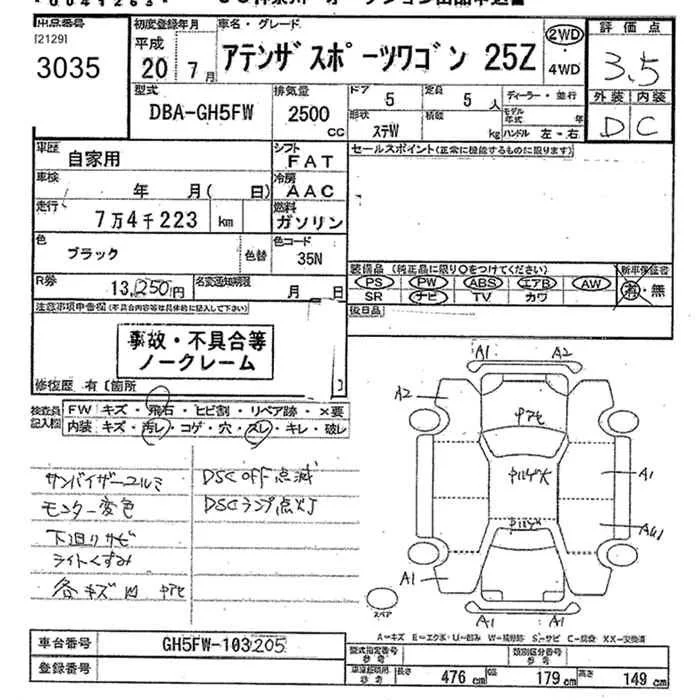 出品番号
[2129]
3035
初度登録年月
平成
20 年 7 月
車名・グレード
アテンザスポーツワゴン 25Z
2WD
・
4WD
評価点
3.5
外装 内装
D C
型式
DBA-GH5FW
排気量
2500
CC
ドア
5
定員
5 人
ディーラー・並行
形状
ステW
積載
kg
モデル年式 年
ハンドル 左・右
車歴
自家用
シフト
FAT
車検
年 月( 日)
冷房
AAC
走行
7万4千223 km
燃料
ガソリン
色
ブラック
色替
色コード
35N
R券
13,250円
名変通知期限
月 日
セールスポイント(正常に機能するものに限ります)
装備品(純正品に限り○をつけてください)
PS PW ABS エアB AW
SR ナビ TV カワ
新車保証書
有・無
後日品
注意事項申告欄(不具合内容等は具体的に記入して下さい)
事故・不具合等
ノークレーム
修復歴 有〔箇所 〕
検査員記入欄
FW キズ・飛石・ヒビ割・リペア跡・×要
内装 キズ・汚レ・コゲ・穴・スレ・キレ・破レ
サンバイザーユルミ
モニター変色
下廻りサビ
ライトくすみ
各キズ凹 中アセ
DSC OFF点滅
DSCランプ点灯
A1 A2
A2
中アセ
A1
A1
A1 A1
スペア
A-キズ E-エクボ U-凹み W-補修跡 S-サビ C-腐食 XX-交換済
車台番号
GH5FW-103205
登録番号
型式指定番号
参考
類別区分番号
参考
車庫証明用
参考
長さ 476 cm 幅 179 cm 高さ 149 cm